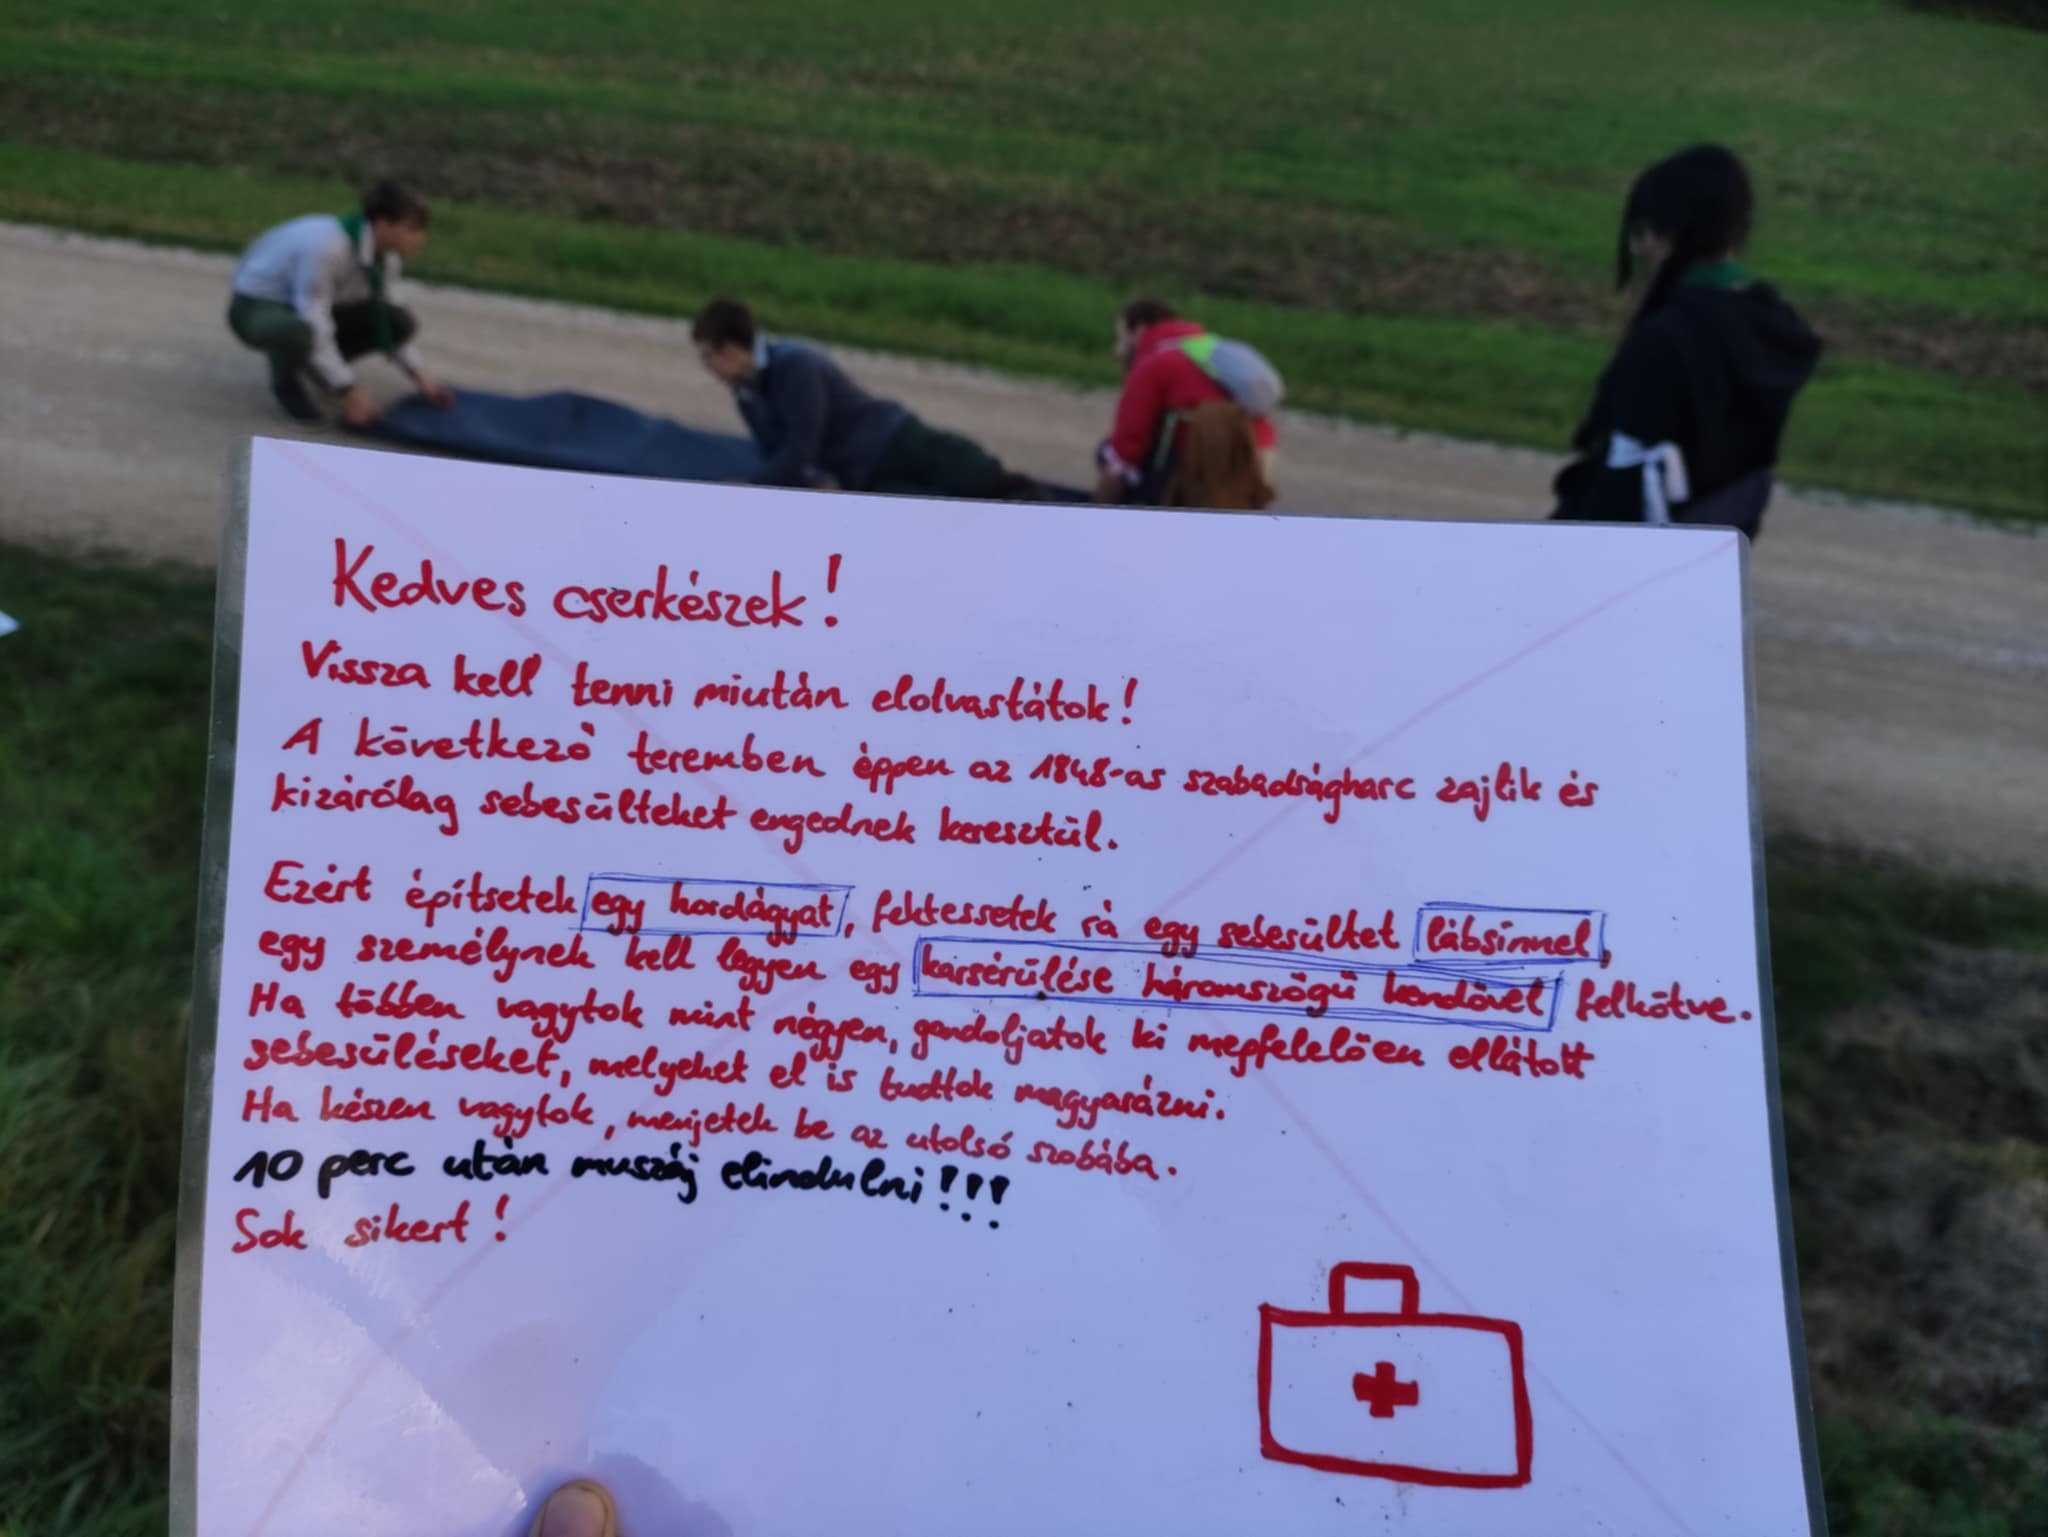 Kedves cserkészek!
Vissza kell tenni miután elolvastátok!
A következő teremben éppen az 1848-as szabadságharc zajlik és
kizárólag sebesülteket engednek keresztül.
Ezért építsetek egy hordágyat, fektessetek rá egy sebesültet lábsínnel,
egy személynek kell legyen egy karsérülése háromszögű kendővel felkötve.
Ha többen vagytok mint négyen, gondoljatok ki megfelelően ellátott
sebesüléseket, melyeket el is tudtok magyarázni.
Ha készen vagytok, menjetek be az utolsó szobába.
10 perc után muszáj elindulni!!!
Sok sikert!